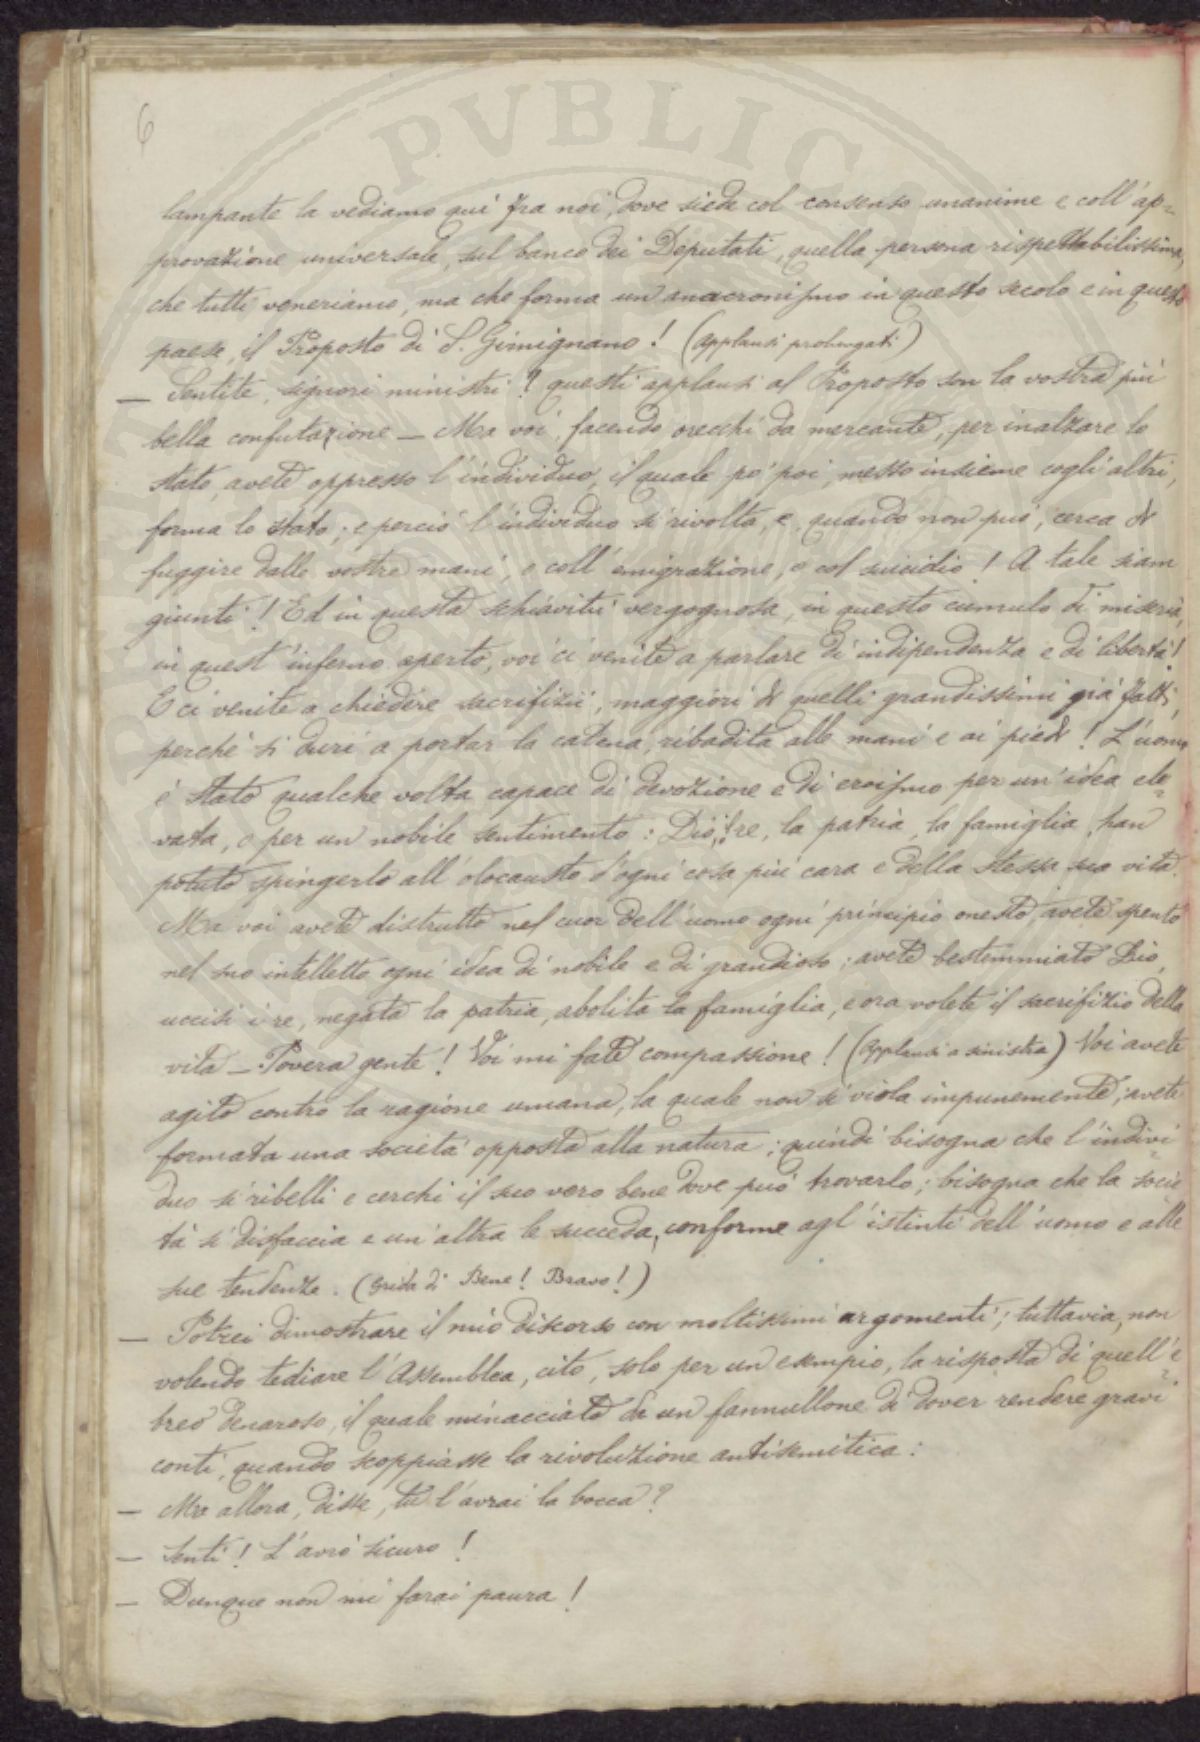 PVBLIC
6
lampante la vediamo qui fra noi, dove siede col consenso unanime e coll'ap=
provazione universale, sul banco dei Deputati, quella persona rispettabilissima,
che tutti veneriamo, ma che forma un anacronismo in questo secolo e in questo
paese, il Proposto di S. Gimignano! (applausi prolungati)
— Sentite, signori ministri? questi applausi al Proposto son la vostra più
bella confutazione — Ma voi, facendo orecchi da mercante, per inalzare lo
stato, avete oppresso l'individuo, il quale po' poi, messo insieme cogli altri,
forma lo stato; e perciò l'individuo si rivolta, e, quando non può, cerca di
fuggire dalle vostre mani, o coll'emigrazione, o col suicidio! A tale siam
giunti! Ed in questa schiavitù vergognosa, in questo cumulo di miseria,
in quest'inferno aperto, voi ci venite a parlare di indipendenza e di libertà!
E ci venite a chiedere sacrifizii, maggiori di quelli grandissimi già fatti,
perchè si duri a portar la catena, ribadita alle mani e ai piedi! L'uomo
è stato qualche volta capace di devozione e di eroismo per un'idea ele=
vata, o per un nobile sentimento: Dio, il re, la patria, la famiglia, han
potuto spingerlo all'olocausto d'ogni cosa più cara e della stessa sua vita.
Ma voi avete distrutto nel cuor dell'uomo ogni principio onesto, avete spento
nel suo intelletto ogni idea di nobile e di grandioso; avete bestemmiato Dio,
uccisi i re, negata la patria, abolita la famiglia, e ora volete il sacrifizio della
vita — Povera gente! Voi mi fate compassione! (Applausi a sinistra) Voi avete
agito contro la ragione umana, la quale non si viola impunemente; avete
formata una società opposta alla natura; quindi bisogna che l'indivi=
duo si ribelli e cerchi il suo vero bene dove può trovarlo; bisogna che la socie=
tà si disfaccia e un'altra le succeda, conforme agl'istinti dell'uomo e alle
sue tendenze. (Grida di Bene! Bravo!)
— Potrei dimostrare il mio discorso con moltissimi argomenti; tuttavia, non
volendo tediare l'Assemblea, cito, solo per un esempio, la risposta di quell'e=
breo denaroso, il quale minacciato da un fannullone di dover rendere gravi
conti, quando scoppiasse la rivoluzione antisemitica:
— Ma allora, disse, tu l'avrai la bocca?
— Senti! L'avrò sicuro!
— Dunque non mi farai paura!